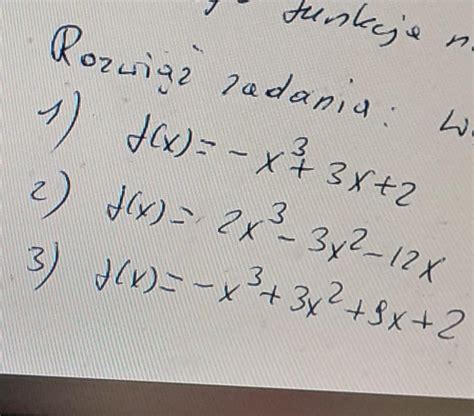 funkcje n
Rozwiąż zadania:
1) f(x) = -x³ + 3x + 2
2) f(x) = 2x³ - 3x² - 12x
3) f(x) = -x³ + 3x² + 9x + 2